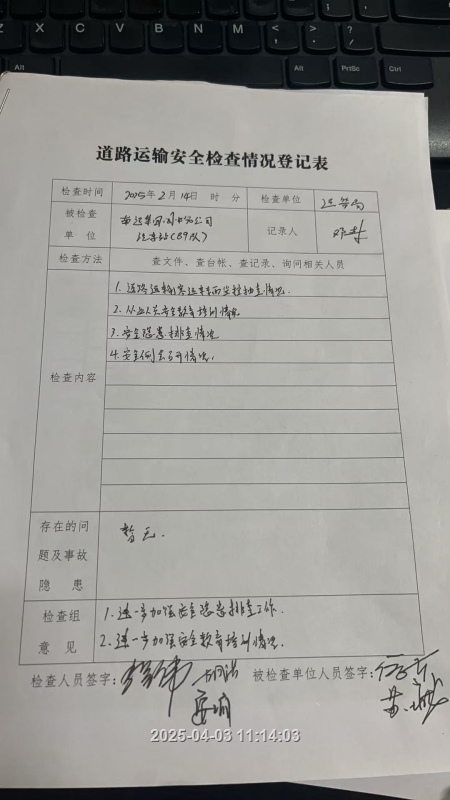 Alt
Alt
PrtSc
Ctrl
道路运输安全检查情况登记表
检查时间 2025年 2月 14日 时 分 检查单位 运管局
被检查
单位 公司
(89队)
记录人
检查方法 查文件、查台帐、查记录、询问相关人员
检查内容
1. 道路运输客运车辆安检抽查情况.
2. 从业人员安全教育培训情况
3. 安全隐患排查情况
4. 安全例会召开情况.
存在的问
题及事故
隐患
暂无.
检查组
意见
1. 进一步加强安全隐患排查工作.
2. 进一步加强安全教育培训情况.
检查人员签字: 被检查单位人员签字:
2025-04-03 11:14:03